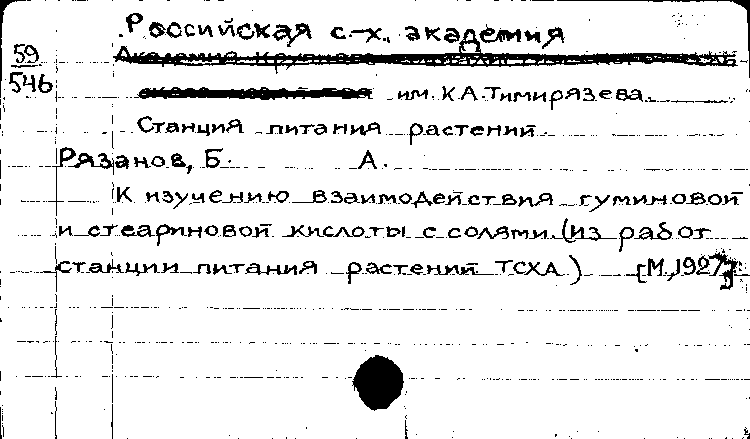 Российская с.-х. академия
59
546
им. К.А. Тимирязева.
Станция питания растений
Рязанов, Б. А.
К изучению взаимодействия гуминовой
и стеариновой кислоты с солями. (из работ
станции питания растений ТСХА) [М., 1927]